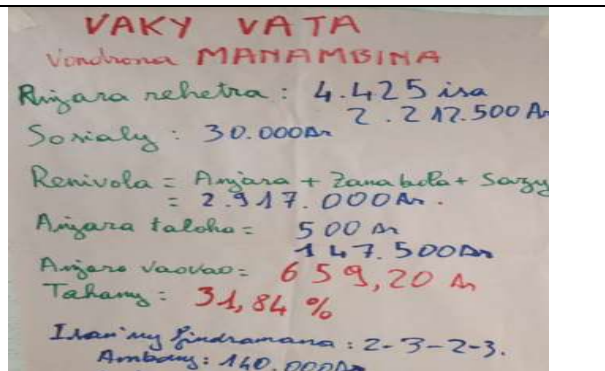 VAKY VATA
Vondrona MANAMBINA
Anjara rehetra : 4.425 isa
2.212.500 Ar
Sosialy : 30.000Ar
Renivola = Anjara + Zanabola + Sazy
= 2.917.000Ar.
Anjara taloha = 500 Ar
147.500Ar
Anjara vaovao = 659,20 Ar
Tahany : 31,84 %
Isan'ny findramana : 2-3-2-3.
Ambony : 140.000Ar